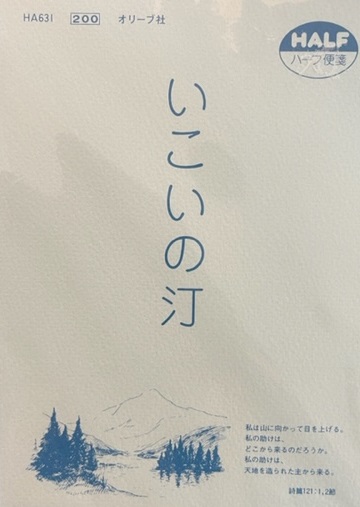 HA631 200 オリーブ社
HALF
ハーフ便箋
いこいの汀
私は山に向かって目を上げる。
私の助けは、
どこから来るのだろうか。
私の助けは、
天地を造られた主から来る。
詩篇121:1,2節